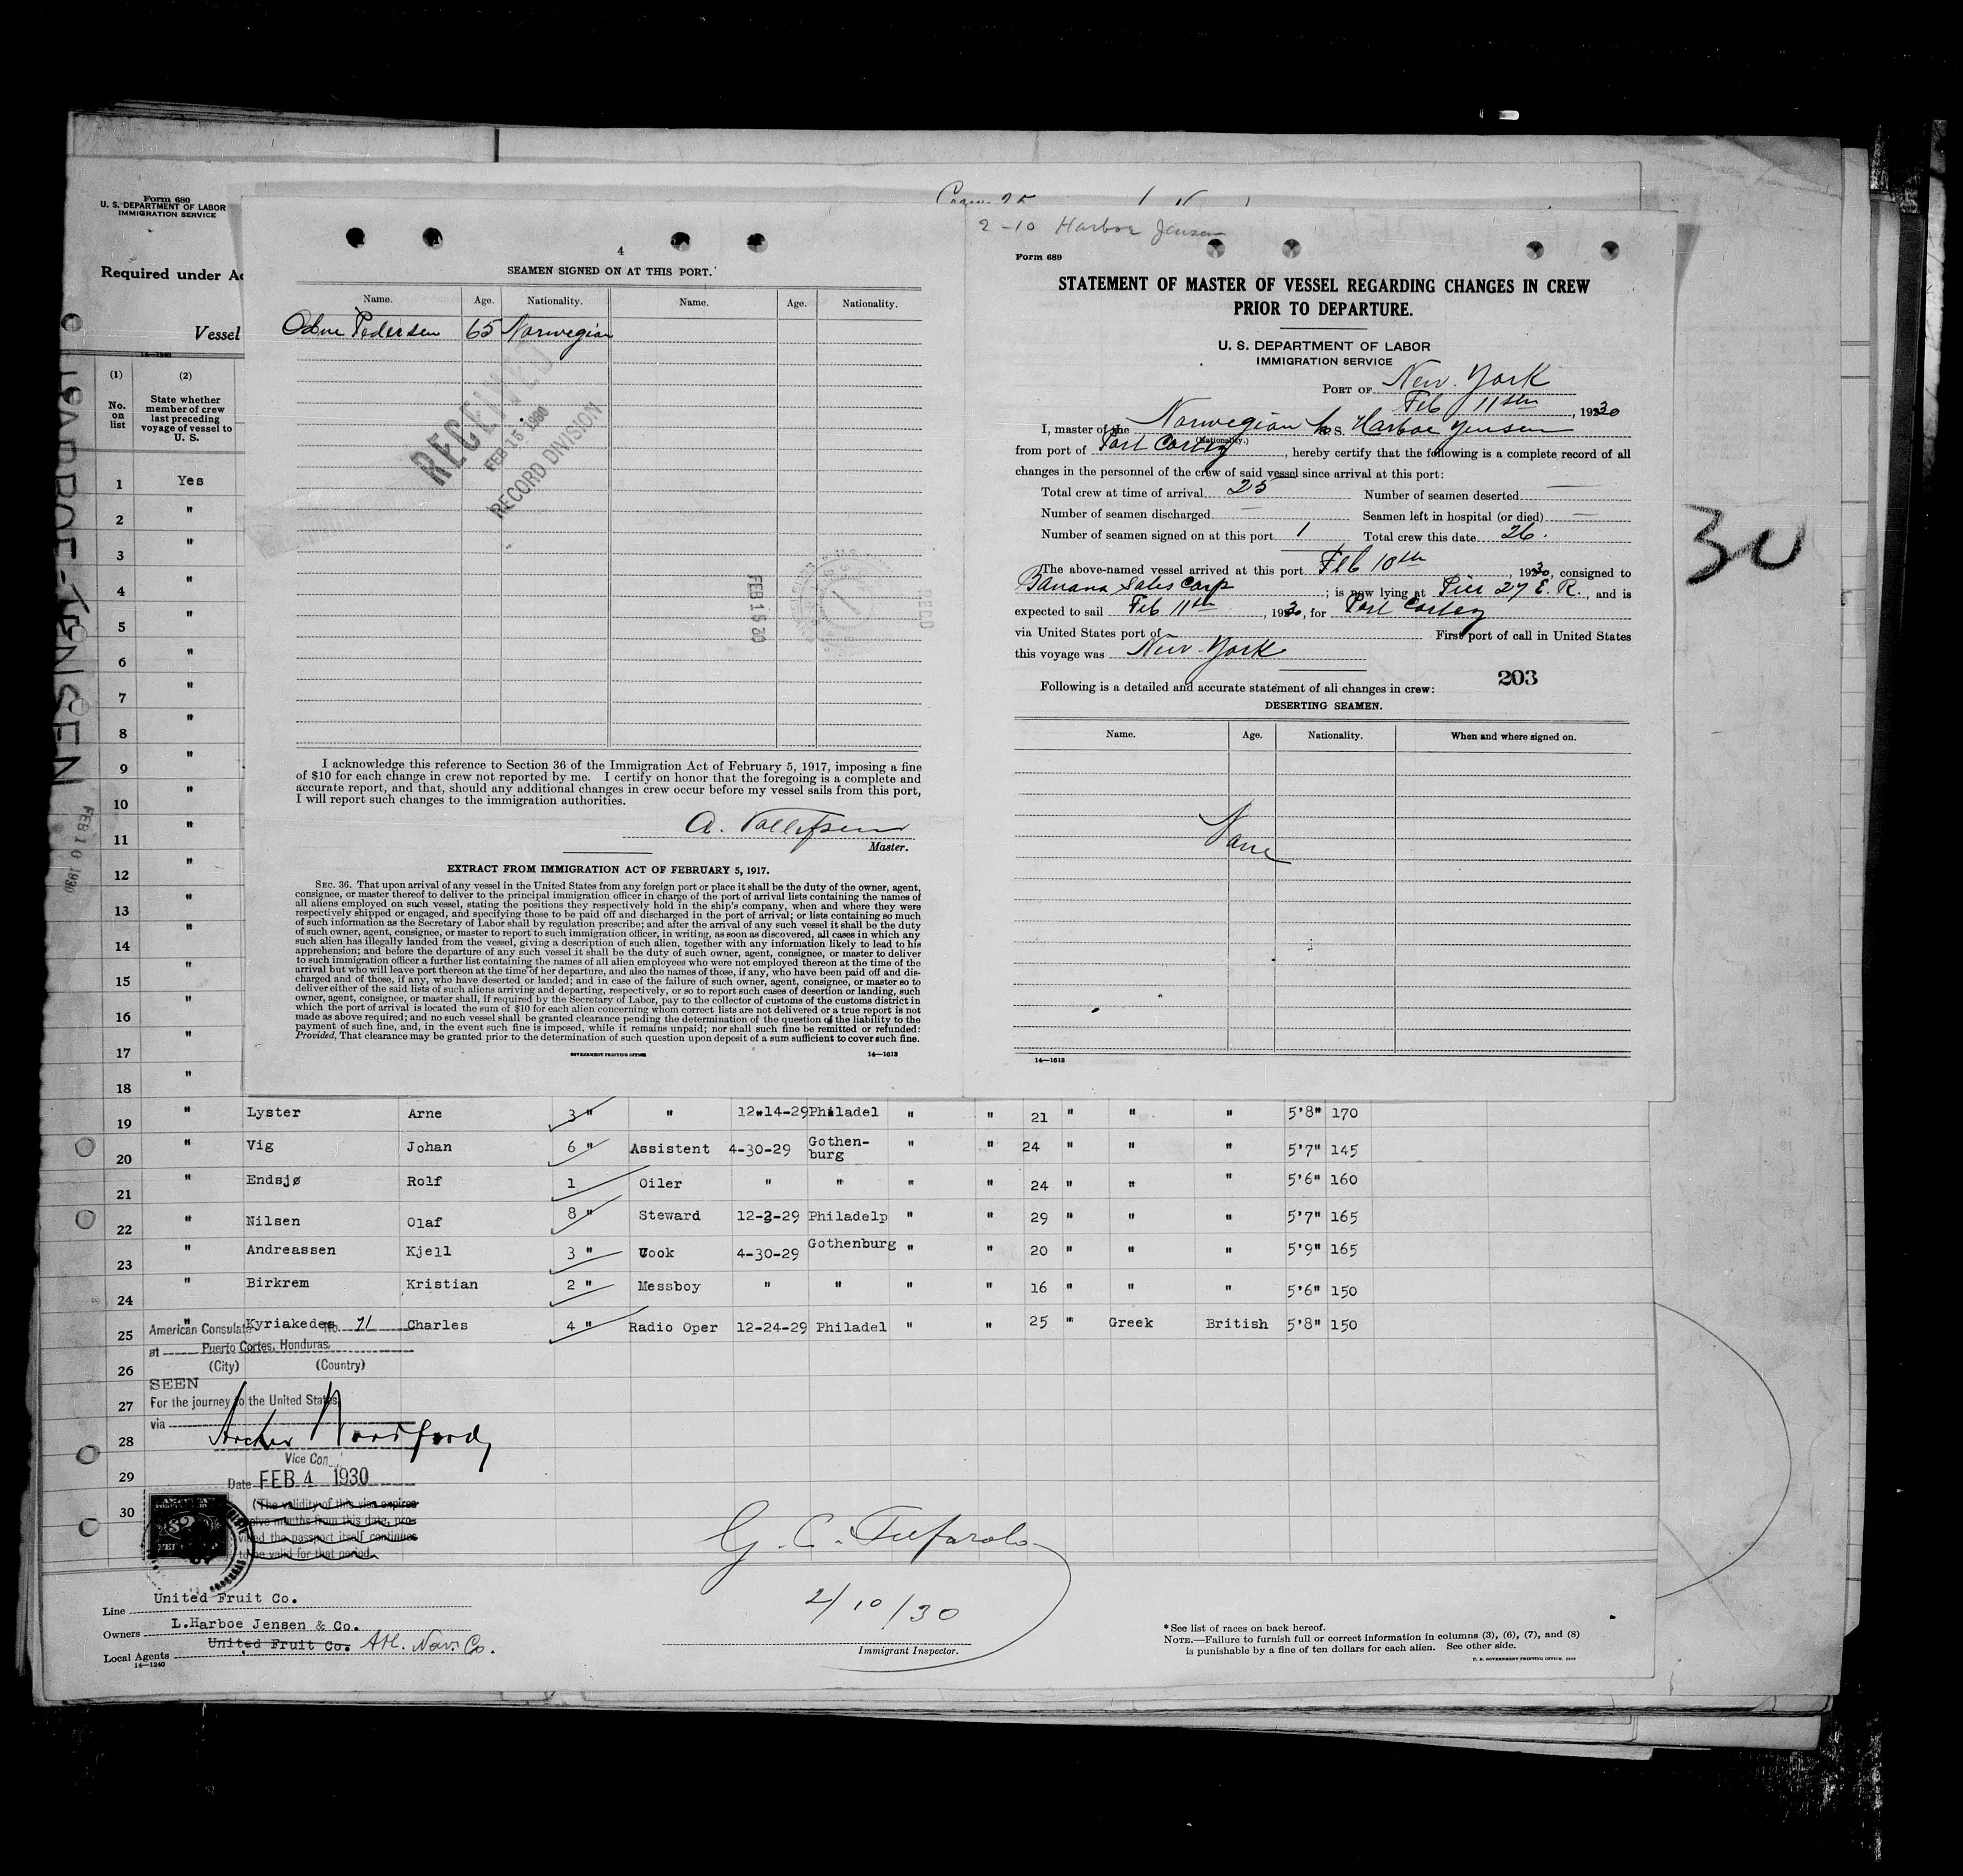 Form 680
U. S. DEPARTMENT OF LABOR
IMMIGRATION SERVICE
Required under Ac
Vessel
14—1240
(1)
No.
on
list
(2)
State whether
member of crew
last preceding
voyage of vessel to
U. S.
HARBOE-JENSEN
FEB 10 1930
1 Yes
2 "
3 "
4 "
5 "
6 "
7 "
8 "
9 "
10 "
11 "
12 "
13 "
14 "
15 "
16 "
17 "
18 "
4
SEAMEN SIGNED ON AT THIS PORT.
Name. Age. Nationality. Name. Age. Nationality.
Pedersen 65 Norwegian
RECEIVED
FEB 15 1930
RECORD DIVISION
FEB 15 30
I acknowledge this reference to Section 36 of the Immigration Act of February 5, 1917, imposing a fine
of $10 for each change in crew not reported by me. I certify on honor that the foregoing is a complete and
accurate report, and that, should any additional changes in crew occur before my vessel sails from this port,
I will report such changes to the immigration authorities.
A.
Master.
EXTRACT FROM IMMIGRATION ACT OF FEBRUARY 5, 1917.
SEC. 36. That upon arrival of any vessel in the United States from any foreign port or place it shall be the duty of the owner, agent,
consignee, or master thereof to deliver to the principal immigration officer in charge of the port of arrival lists containing the names of
all aliens employed on such vessel, stating the positions they respectively hold in the ship's company, when and where they were
respectively shipped or engaged, and specifying those to be paid off and discharged in the port of arrival; or lists containing so much
of such information as the Secretary of Labor shall by regulation prescribe; and after the arrival of any such vessel it shall be the duty
of such owner, agent, consignee, or master to report to such immigration officer, in writing, as soon as discovered, all cases in which any
such alien has illegally landed from the vessel, giving a description of such alien, together with any information likely to lead to his
apprehension; and before the departure of any such vessel it shall be the duty of such owner, agent, consignee, or master to deliver
to such immigration officer a further list containing the names of all alien employees who were not employed thereon at the time of the
arrival but who will leave port thereon at the time of her departure, and also the names of those, if any, who have been paid off and dis-
charged and of those, if any, who have deserted or landed; and in case of the failure of such owner, agent, consignee, or master so to
deliver either of the said lists of such aliens arriving and departing, respectively, or so to report such cases of desertion or landing, such
owner, agent, consignee, or master shall, if required by the Secretary of Labor, pay to the collector of customs of the customs district in
which the port of arrival is located the sum of $10 for each alien concerning whom correct lists are not delivered or a true report is not
made as above required; and no such vessel shall be granted clearance pending the determination of the question of the liability to the
payment of such fine, and, in the event such fine is imposed, while it remains unpaid; nor shall such fine be remitted or refunded:
Provided, That clearance may be granted prior to the determination of such question upon deposit of a sum sufficient to cover such fine.
GOVERNMENT PRINTING OFFICE 14—1613
2-10 Harboe Jensen
Form 689
STATEMENT OF MASTER OF VESSEL REGARDING CHANGES IN CREW
PRIOR TO DEPARTURE.
U. S. DEPARTMENT OF LABOR
IMMIGRATION SERVICE
PORT OF New York
Feb 11th, 1930
I, master of the Norwegian S.S. Harboe Jensen
(Nationality.)
from port of Port Cortez, hereby certify that the following is a complete record of all
changes in the personnel of the crew of said vessel since arrival at this port:
Total crew at time of arrival 25 Number of seamen deserted —
Number of seamen discharged — Seamen left in hospital (or died) —
Number of seamen signed on at this port 1 Total crew this date 26.
The above-named vessel arrived at this port Feb 10th, 1930, consigned to
Banana Sales Corp; is now lying at Pier 27 E. R., and is
expected to sail Feb 11th, 1930, for Port Cortez
via United States port of First port of call in United States
this voyage was New York
203
Following is a detailed and accurate statement of all changes in crew:
DESERTING SEAMEN.
Name. Age. Nationality. When and where signed on.
None
14—1613
30
19 " Lyster Arne 3 " " 12-14-29 Philadel " " 21 " " " 5'8" 170
20 " Vig Johan 6 " Assistent 4-30-29 Gothen-burg " " 24 " " " 5'7" 145
21 " Endsjø Rolf 1 Oiler " " " " 24 " " " 5'6" 160
22 " Nilsen Olaf 8 " Steward 12-3-29 Philadelp " " 29 " " " 5'7" 165
23 " Andreassen Kjell 3 " Cook 4-30-29 Gothenburg " " 20 " " " 5'9" 165
24 " Birkrem Kristian 2 " Messboy " " " " 16 " " " 5'6" 150
25 " Kyriakedes Charles 4 " Radio Oper 12-24-29 Philadel " " 25 " Greek British 5'8" 150
26
27
28
29
30
American Consulate No. 71
at Puerto Cortes, Honduras.
(City) (Country)
SEEN
For the journey to the United States
via
Archer Woodford
Vice Con
Date FEB 4 1930
(The validity of this visa expires
twelve months from this date, pro-
vided the passport itself continues
to be valid for that period.
G. C.
2/10/30
Immigrant Inspector.
Line United Fruit Co.
Owners L.Harboe Jensen & Co.
Local Agents United Fruit Co. Atl. Nav. Co.
14—1240
*See list of races on back hereof.
NOTE.—Failure to furnish full or correct information in columns (3), (6), (7), and (8)
is punishable by a fine of ten dollars for each alien. See other side.